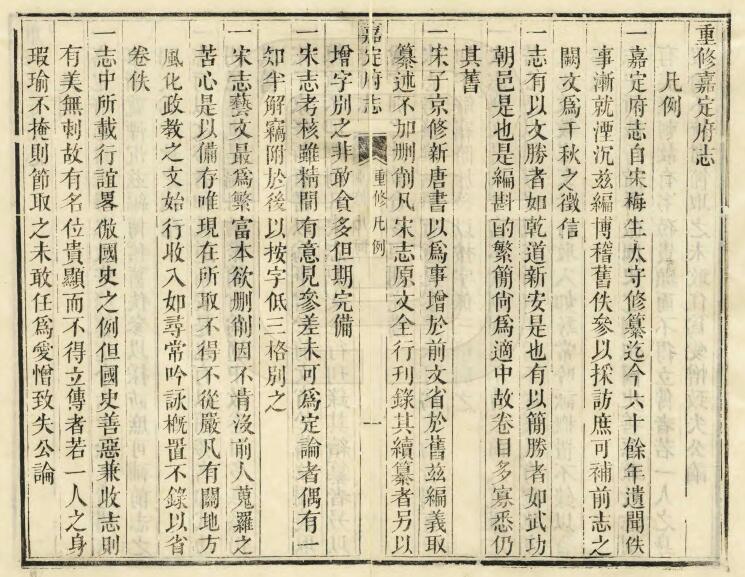 重修嘉定府志
凡例
一嘉定府志自宋梅生太守修纂迄今六十餘年遺聞佚
事漸就湮沉兹編博稽舊佚參以採訪庶可補前志之
闕文爲千秋之徵信
一志有以文勝者如乾道新安是也有以簡勝者如武功
朝邑是也是編斟酌繁簡尙爲適中故卷目多寡悉仍
其舊
一宋子京修新唐書以爲事增於前文省於舊兹編義取
纂述不加刪削凡宋志原文全行刊錄其續纂者另以
增字别之非敢貪多但期完備
一宋志考核雖精間有意見參差未可爲定論者偶有一
知半解竊附於後以按字低三格别之
一宋志藝文最爲繁富本欲刪削因不肯沒前人蒐羅之
苦心是以備存唯現在所取不得不從嚴凡有關地方
風化政教之文始行收入如尋常吟詠槪置不錄以省
卷佚
一志中所載行誼畧倣國史之例但國史善惡兼收志則
有美無刺故有名位貴顯而不得立傳者若一人之身
瑕瑜不掩則節取之未敢任爲愛憎致失公論
嘉定府志
重修凡例
一